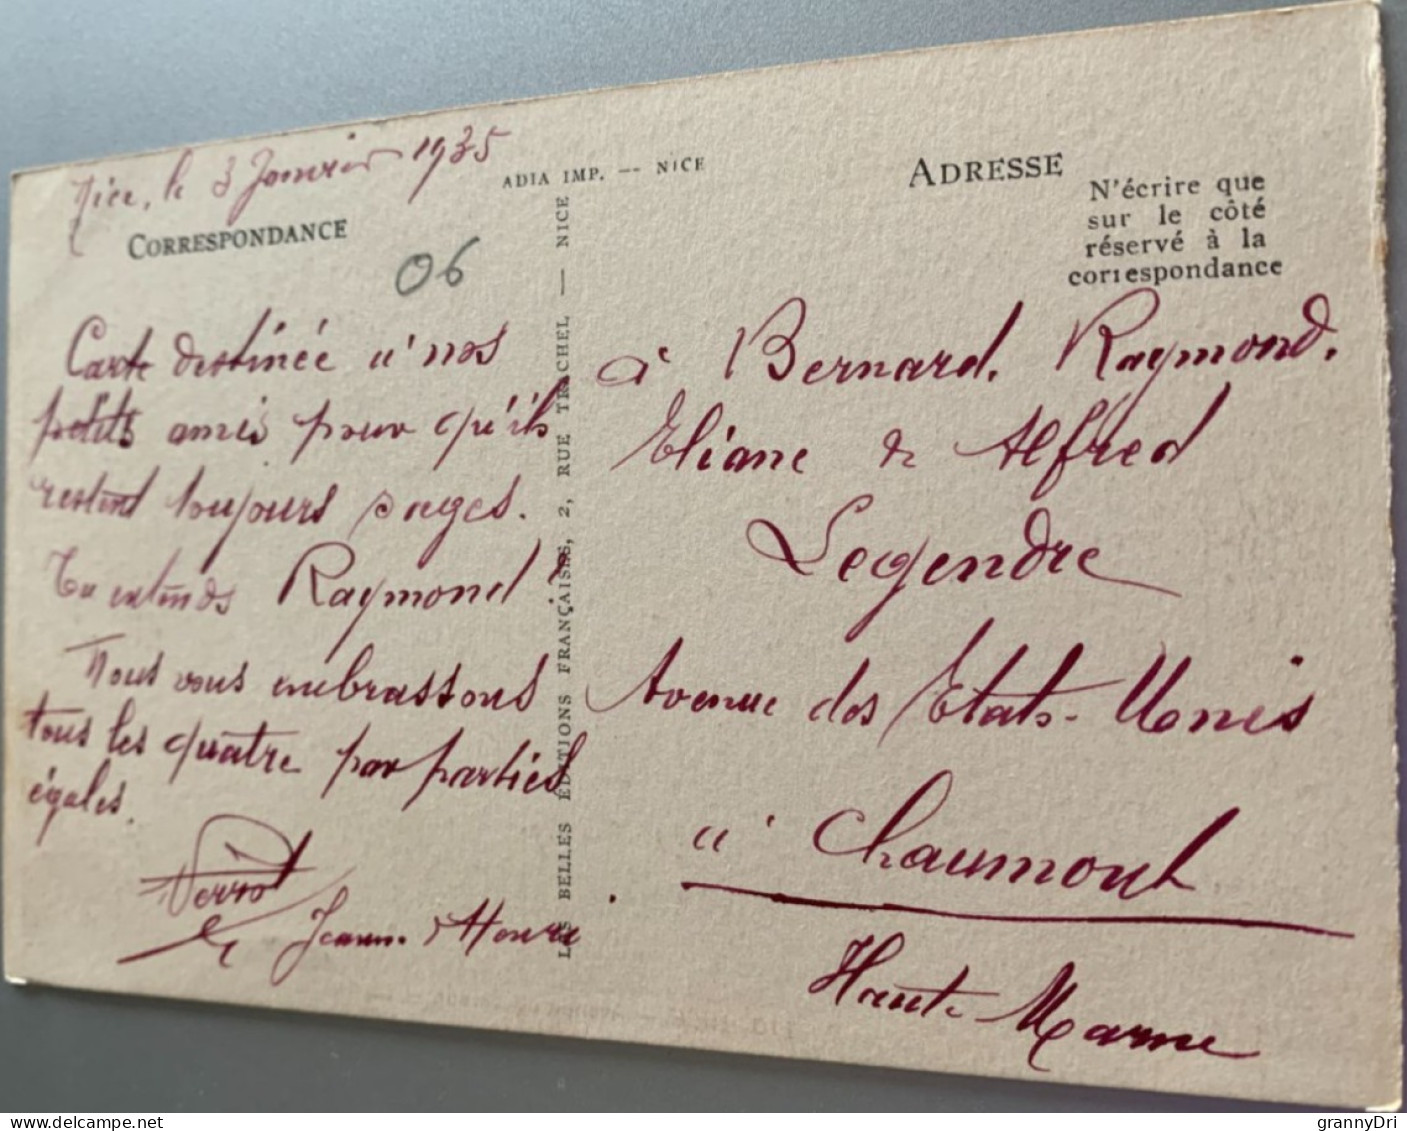 Nice, le 3 Janvier 1935
CORRESPONDANCE
06
Carte destinée a' nos
petits amis pour qu'ils
restent toujours sages.
Tu entends Raymond?
Nous vous embrassons
tous les quatre par parties
égales.
Jeanne
ADIA IMP. -- NICE
LES BELLES ÉDITIONS FRANÇAISES, 2, RUE TRACHEL — NICE
ADRESSE
N'écrire que
sur le côté
réservé à la
correspondance
à Bernard, Raymond,
Eliane & Alfred
Legendre
Avenue des Etats-Unis
a' Chaumont
Haute-Marne
grannyDri
delcampe.net